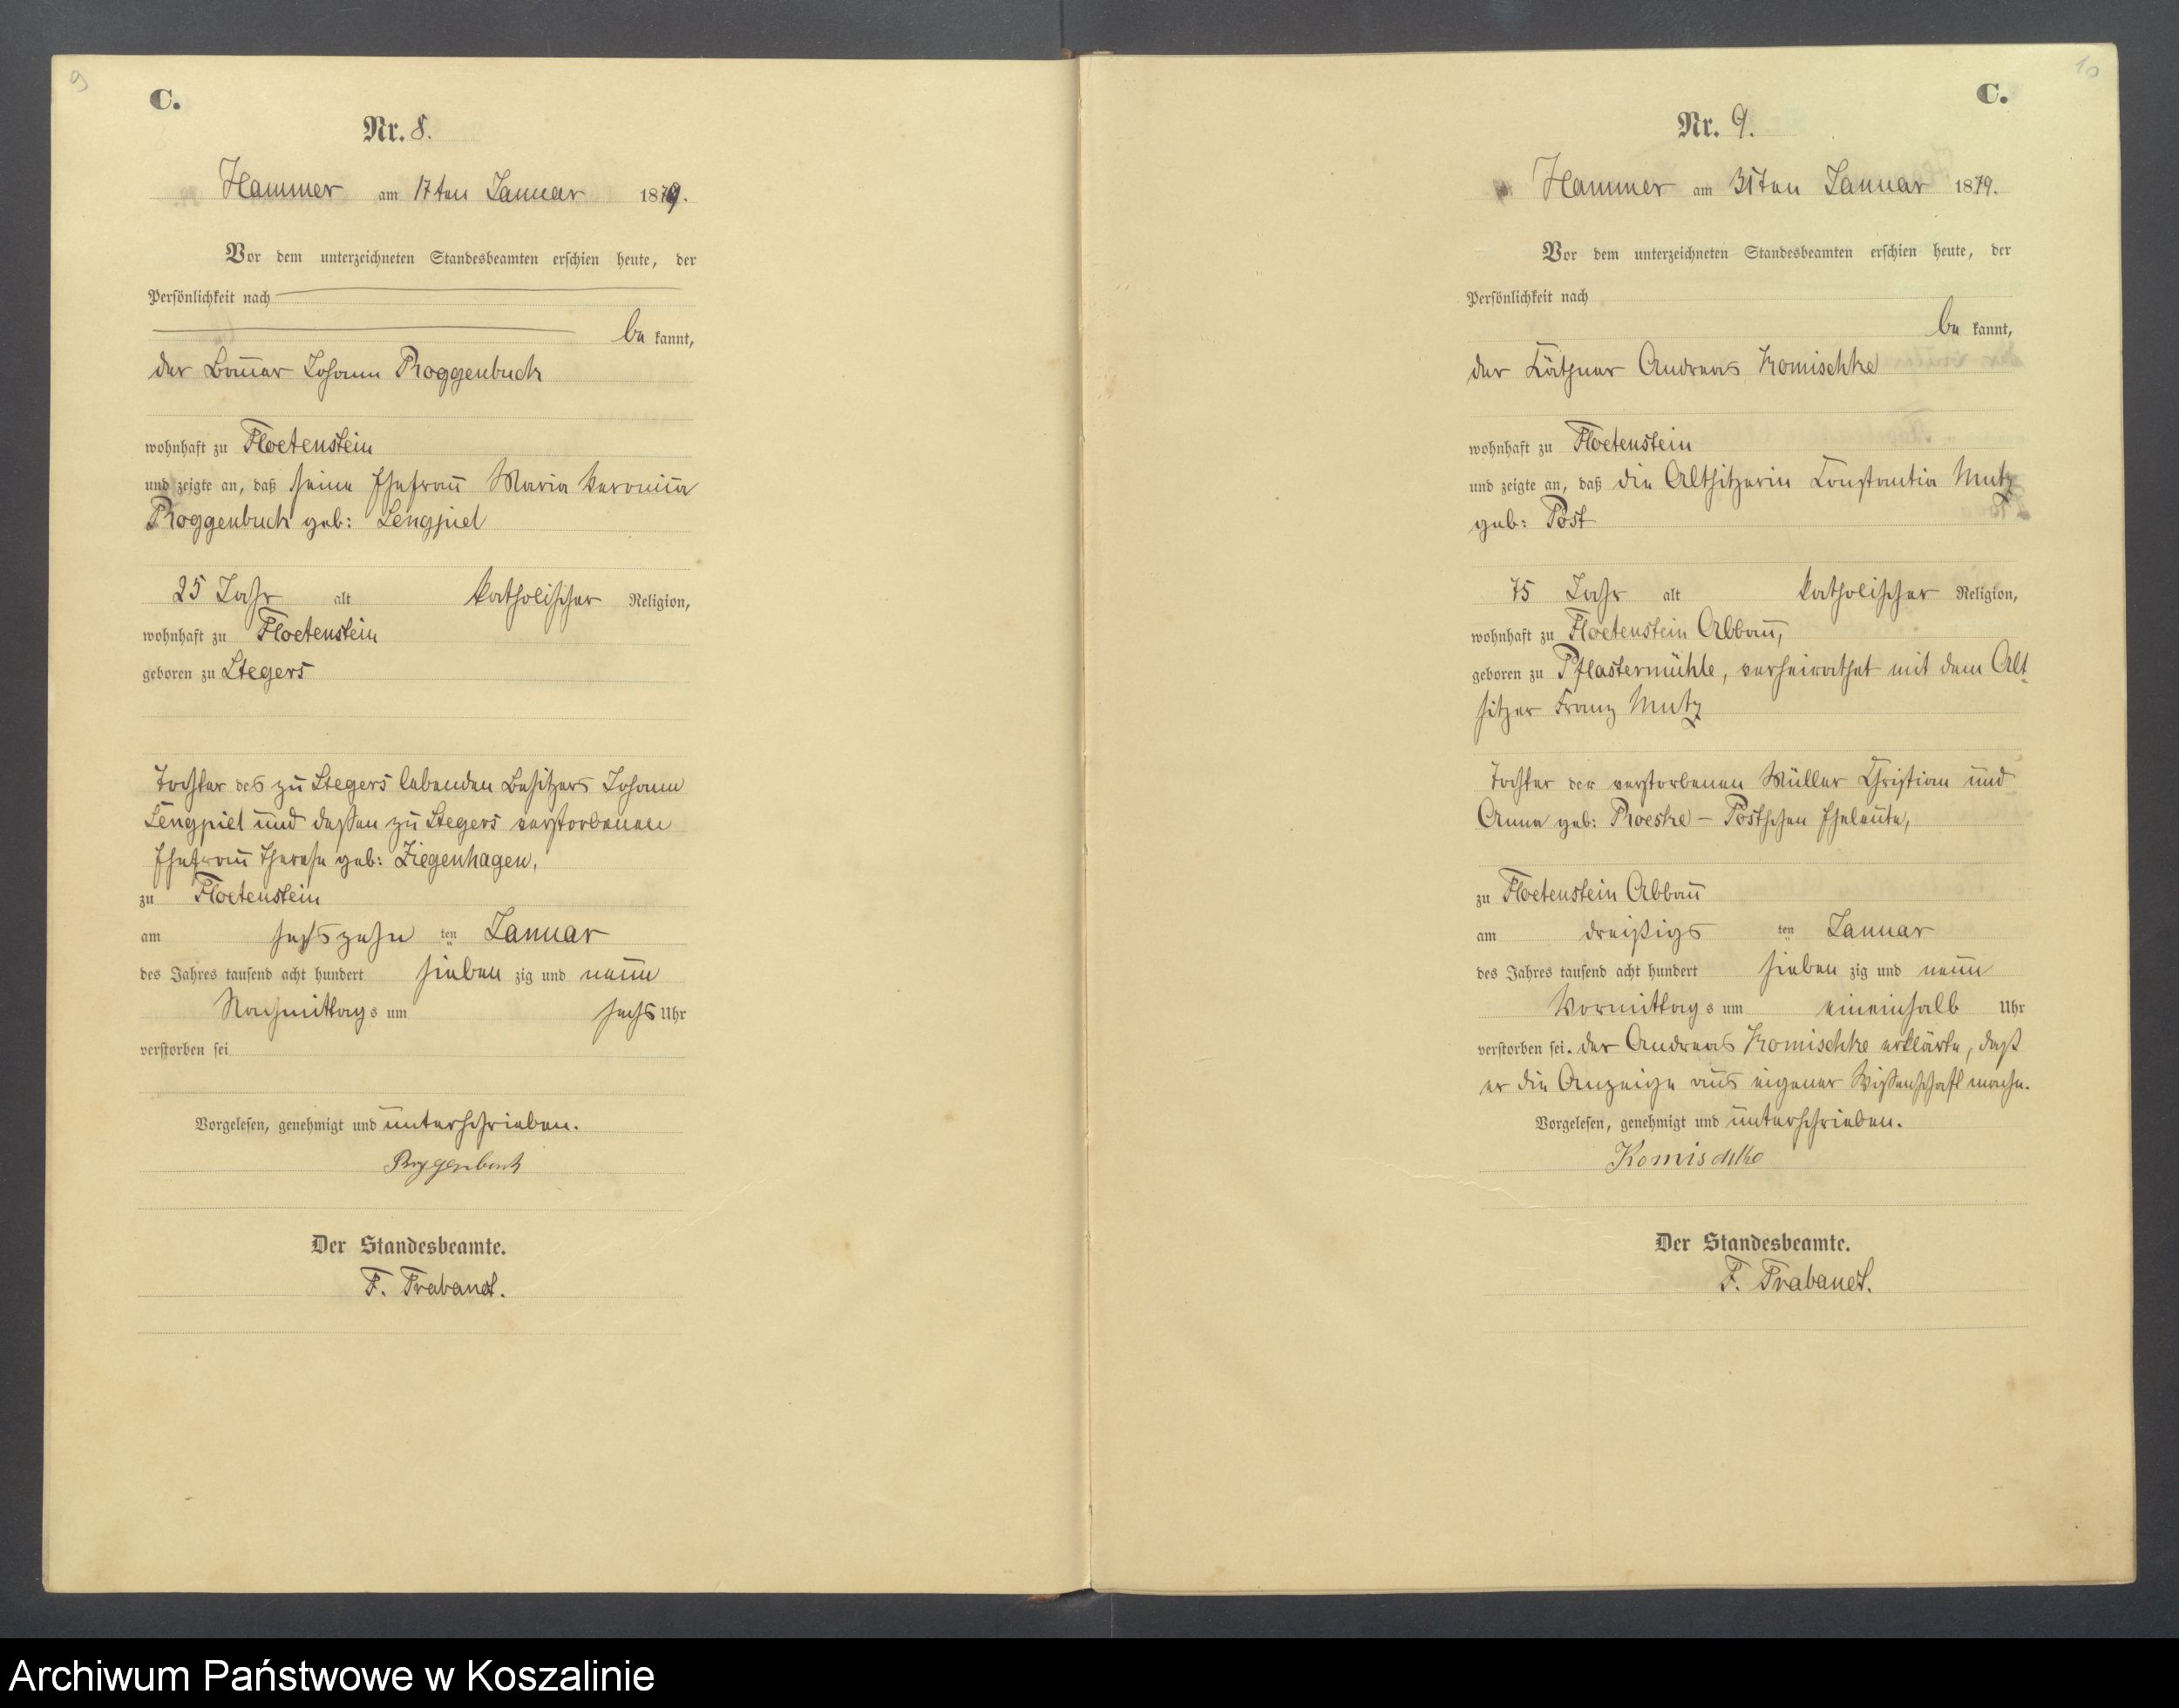 9
C.
Nr. 8.
Hammer am 17ten Januar 1879.
Vor dem unterzeichneten Standesbeamten erschien heute, der
Persönlichkeit nach
be kannt,
der Bauer Johann Roggenbuck
wohnhaft zu Floetenstein
und zeigte an, daß seine Ehefrau Maria Veronica
Roggenbuck geb: Lengpiel
25 Jahr alt katholischer Religion,
wohnhaft zu Floetenstein
geboren zu Stegers
Tochter des zu Stegers lebenden Besitzers Johann
Lengpiel und dessen zu Stegers verstorbenen
Ehefrau Therese geb: Ziegenhagen,
zu Floetenstein
am sechszehn ten Januar
des Jahres tausend acht hundert sieben zig und neun
Nachmittags um sechs Uhr
verstorben sei
Vorgelesen, genehmigt und unterschrieben.
Roggenbuck
Der Standesbeamte.
F. Trabandt.
10
C.
Nr. 9.
Hammer am 31ten Januar 1879.
Vor dem unterzeichneten Standesbeamten erschien heute, der
Persönlichkeit nach
be kannt,
der Käthner Andreas Komischke
wohnhaft zu Floetenstein
und zeigte an, daß die Altsitzerin Constantia Mutz
geb: Post
75 Jahr alt katholischer Religion,
wohnhaft zu Floetenstein Abbau,
geboren zu Pflastermühle, verheirathet mit dem Alt-
sitzer Franz Mutz
Tochter der verstorbenen Müller Christian und
Anna geb: Roeske – Postschen Eheleute,
zu Floetenstein Abbau
am dreißigs ten Januar
des Jahres tausend acht hundert sieben zig und neun
Vormittags um eineinhalb Uhr
verstorben sei. der Andreas Komischke erklärte, daß
er die Anzeige aus eigener Wissenschaft mache.
Vorgelesen, genehmigt und unterschrieben.
Komischke
Der Standesbeamte.
F. Trabandt.
Archiwum Państwowe w Koszalinie